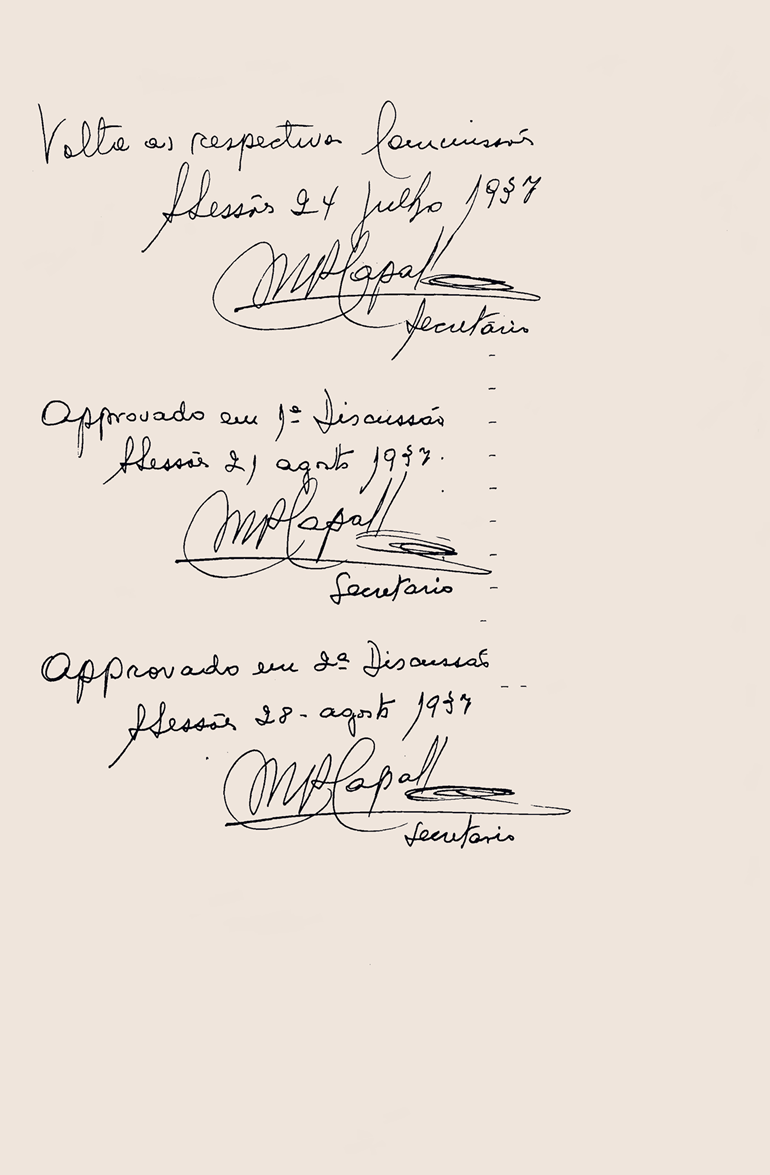 Volta as respectivas Commissões
SSessões 24 julho 1937
Secretário
Approvado em 1ª Discussão
SSessões 21 agosto 1937.
Secretario
Approvado em 2ª Discussão
SSessões 28 - agosto 1937
Secretario